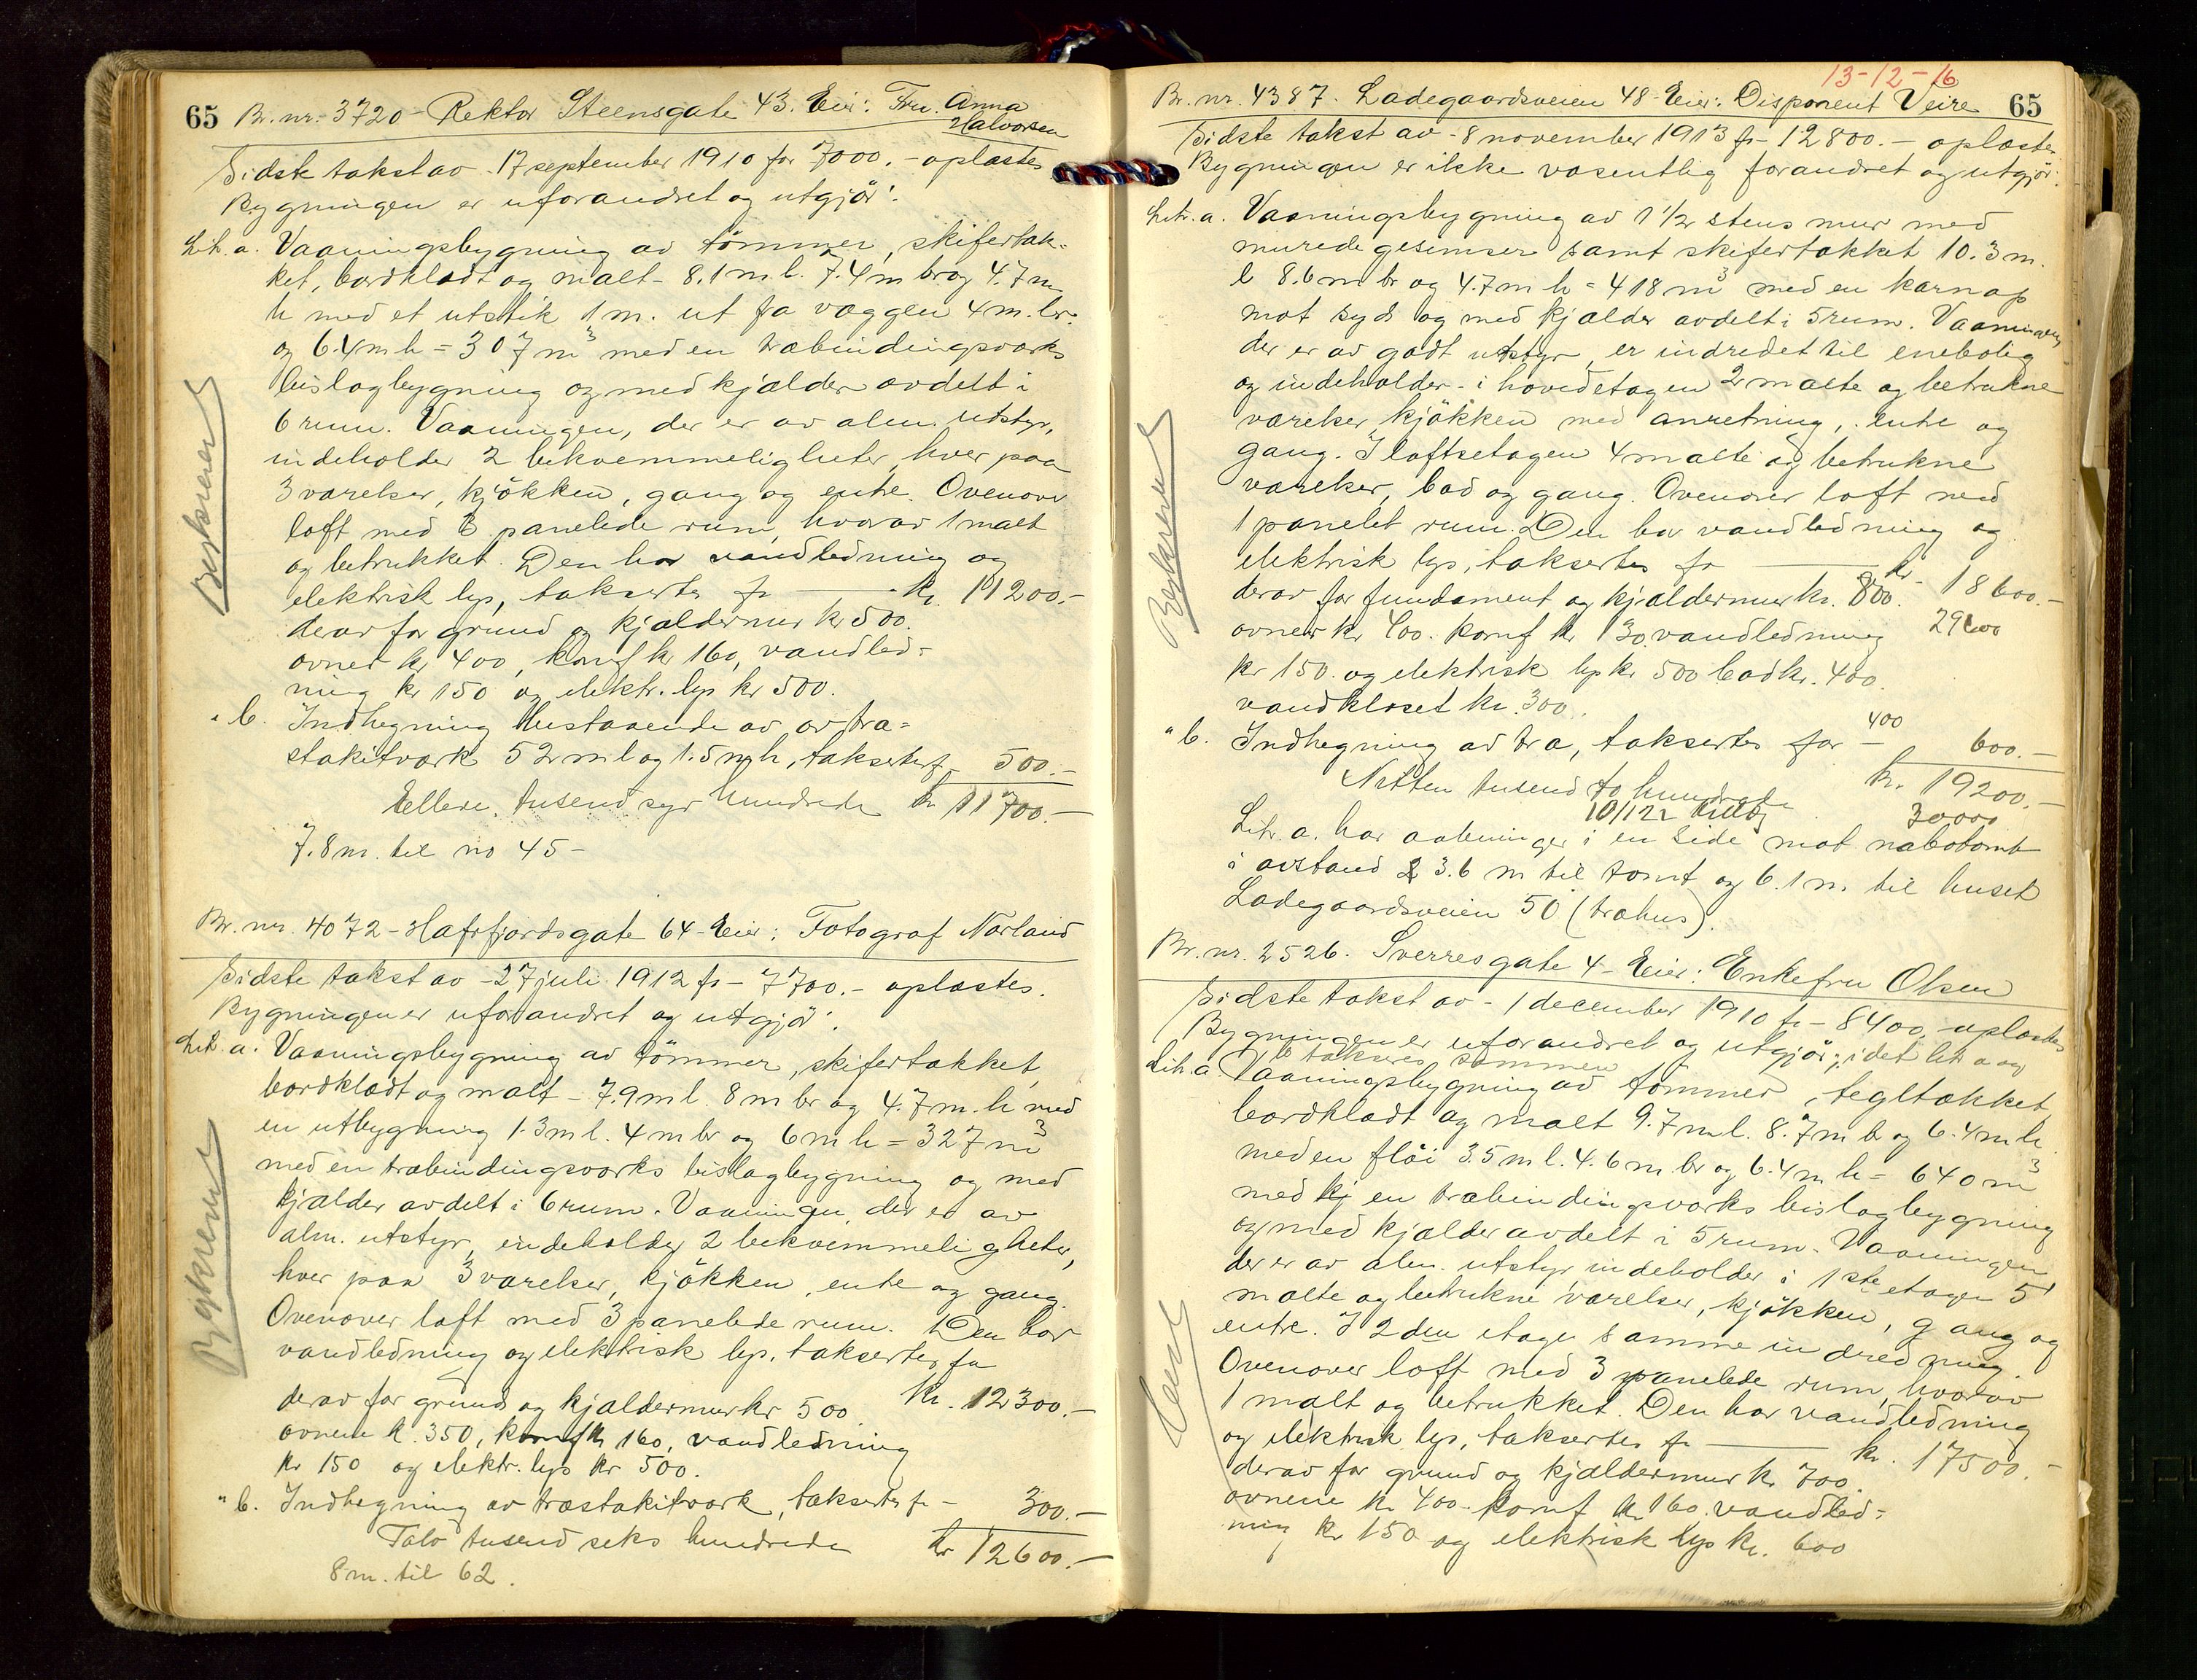 65 Br. nr. 3720 - Rektor Steensgate 43. Eier: Fru Anna
Halvorsen
Sidste takst av 17 september 1910 for 7000.- oplæstes
Bygningen er uforandret og utgjör:
Lit. a. Vaaningsbygning av tömmer, skifertæk-
ket, bordklædt og malt - 8.1 m. l. 7.4 m br og 4.7 m
h med et utstik 1 m. ut fra væggen 4 m. br.
og 6.4 m h = 307 m³ med en træbindingsværks
bislagbygning og med kjælder avdelt i
6 rum. Vaaningen, der er av alm. utstyr,
indeholder 2 bekvemmeligheter, hver paa
3 værelser, kjökken, gang og entre. Ovenover
loft med 3 panelede rum, hvorav 1 malt
og betrukket. Den har vandledning og
elektrisk lys, taksertes fr — kr. 11200.-
derav for grund og kjældermur kr 500.
ovner kr 400, komf kr 160, vandled-
ning kr 150 og elektr. lys kr 500.
" b. Indhegning bestaaende av av træ-
stakitværk 52 m l og 1.5 m h, taksertes fr - 500.-
Elleve tusend syv hundrede kr 11700.-
7.8 m. til no 45 -
Beskrevet
Br. nr. 4072 - Hafrsfjordsgate 64 - Eier: Fotograf Nærland
Sidste takst av - 27 juli 1912 fr - 7700.- oplæstes.
Bygningen er uforandret og utgjör:
Lit. a. Vaaningsbygning av tömmer, skifertækket,
bordklædt og malt - 7.9 m l. 8 m br og 4.7 m. h med
en utbygning 1.3 m l. 4 m br og 6 m h = 327 m³
med en træbindingsværks bislagbygning og med
kjælder avdelt i 6 rum. Vaaningen, der er av
alm. utstyr, indeholder 2 bekvemmeligheter,
hver paa 3 værelser, kjökken, entre og gang.
Ovenover loft med 3 panelede rum. Den har
vandledning og elektrisk lys, taksertes for
kr. 12300.-
derav for grund og kjældermur kr 500
ovnene kr. 350, komf kr 160, vandledning
kr 150 og elektr. lys kr 500.
" b. Indhegning av træstakitværk, taksertes fr - 300.-
Tolv tusend seks hundrede kr 12600.-
8 m. til 62.
Beskrevet
13-12-16
Br. nr. 4387. Ladegaardsveien 48 - Eier: Disponent Veire 65
Sidste takst av - 8 november 1913 fr - 12800.- oplæstes
Bygningen er ikke væsentlig forandret og utgjör:
Litr. a. Vaaningsbygning av 1 1/2 stens mur med
murede gesimser samt skifertækket 10.3 m.
l 8.6 m br og 4.7 m h = 418 m³ med en karnap
mot syd og med kjælder avdelt i 5 rum. Vaaningen,
der er av godt utstyr, er indredet til enebolig
og indeholder - i hovedetagen 2 malte og betrukne
værelser, kjökken med anretning, entre og
gang. I loftsetagen 4 malte og betrukne
værelser, bad og gang. Ovenover loft med
1 panelet rum. Den har vandledning og
elektrisk lys, taksertes fr — kr - 18600.-
derav for fundament og kjældermur kr. 800. 29600
ovner kr 400. komf kr 130, vandledning
kr 150. og elektrisk lys kr 500 bad kr. 400.
vandkloset kr. 300.
" b. Indhegning av træ, taksertes for - 400 600.-
Nitten tusend to hundrede kr. 19200.-
10/122 30000
Litr. a. har aabninger i en side mot nabotomt
i avstand 3.6 m til tomt og 6.1 m. til huset
Ladegaardsveien 50 (træhus).
Beskrevet
Br. nr. 2526. Sverresgate 4 - Eier: Enkefru Olsen
Sidste takst av - 1 december 1910 fr - 8400.- oplæstes
Bygningen er uforandret og utgjör; idet litr a og
b takseres sammen
Lit. a. Vaaningsbygning av tömmer, tegltækket,
bordklædt og malt 9.7 m l. 8.7 m br og 6.4 m h
med en flöi 3.5 m l. 4.6 m br og 6.4 m h = 640 m³
med kj en træbindingsværks bislagbygning
og med kjælder avdelt i 5 rum. Vaaningen
der er av alm. utstyr, indeholder i 1ste etagen 5
malte og betrukne værelser, kjökken, gang og
entre. I 2den etage samme indredning.
Ovenover loft med 3 panelede rum, hvorav
1 malt og betrukket. Den har vandledning
og elektrisk lys, taksertes fr — kr. 17500.-
derav for grund og kjældermur kr. 700.
ovnene kr 400. komf kr 160. vandled-
ning kr 150 og elektrisk lys kr. 600